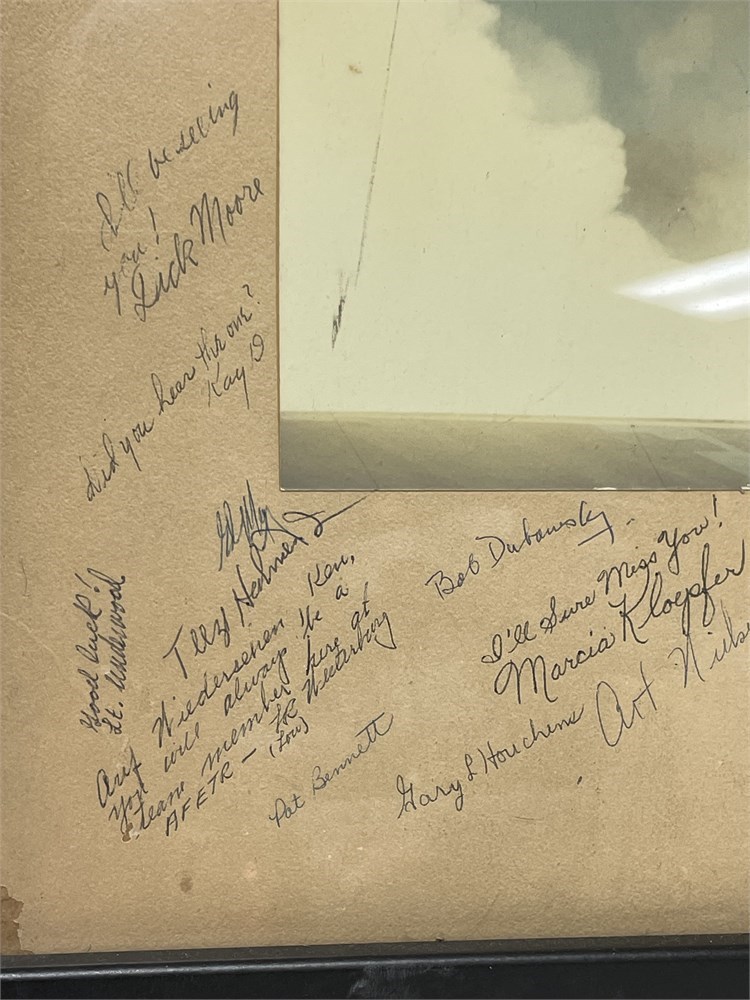 I'll be seeing
you!
Dick Moore
Did you hear the one?
Kay D
Good Luck!
Lt. Underwood
Auf Wiedersehen, Ken,
You will always be a
team member here at
AFETR - FR Westerburg
(Fow)
Pat Bennett
Bob Dubowsky
I'll Sure Miss You!
Marcia Kloepfer
Art
Gary L Houchens